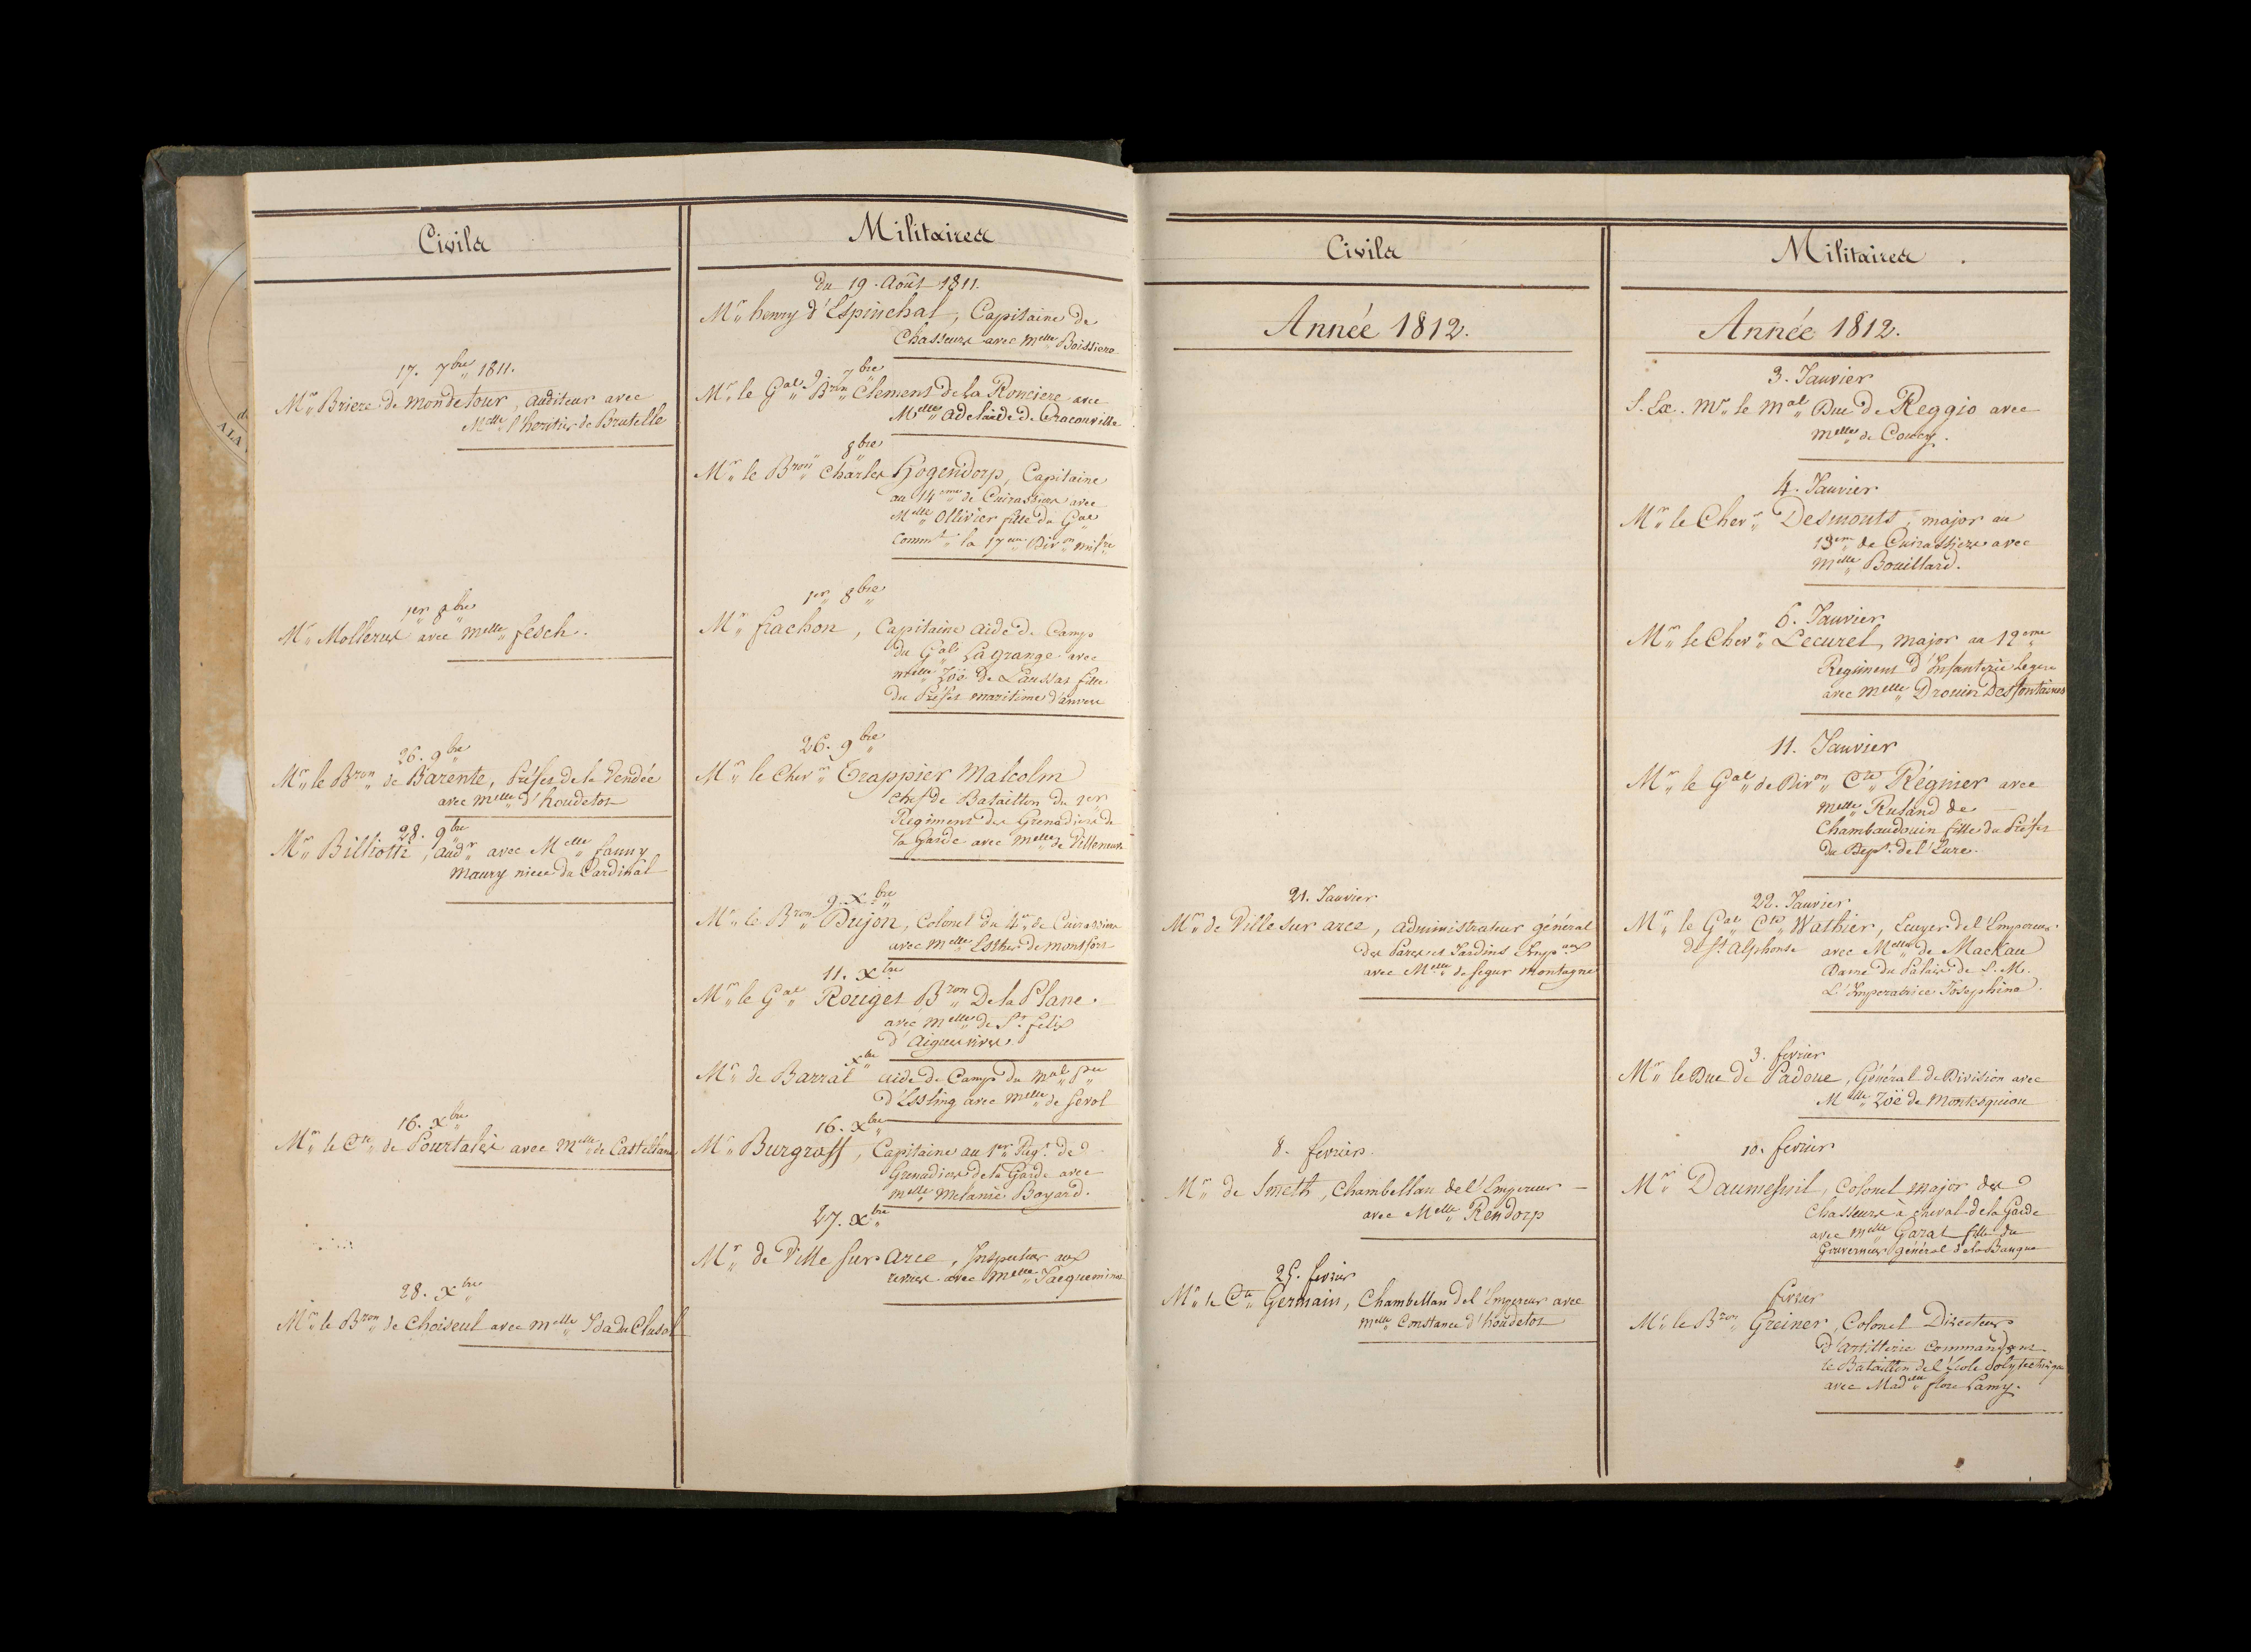 Civils
17. 7bre 1811.
Mr Briere de Mondetour, auditeur avec
Melle l'heritier de Brutelle
1er 8bre
Mr Mollerus avec Melle fesch.
26. 9bre
Mr le Bron de Barente, Préfet de la Vendée
avec Melle d'houdetot
28. 9bre
Mr Billiotti, audr avec Melle fanny
Maury niece du Cardinal
16. Xbre
Mr le Cte de Pourtalès avec Melle de Castellane
28. Xbre
Mr le Bron de Choiseul avec Melle Ida du Clusel
Militaires
du 19. Août 1811.
Mr henry d'Espinchal, Capitaine de
Chasseurs avec Melle Boissiere
9. 7bre
Mr le Gal Bron Clement de la Ronciere avec
Melle adelaide de Cracouville
8bre
Mr le Bron Charles Hogendorp, Capitaine
au 14eme de Cuirassiers avec
Melle Ollivier fille du Gal
Commt la 17eme Divon milre
1er 8bre
Mr frachon, Capitaine aide de Camp
du Gal Lagrange avec
Melle Zoë de Laussat fille
du Préfet maritime d'anvers
26. 9bre
Mr le Cher Trappier Malcolm
chef de Bataillon du 1er
Régiment des Grenadiers de
la Garde avec Melle de Villeneuve
9. Xbre
Mr le Bron Dujon, Colonel du 4e de Cuirassiers
avec Melle Esther de montfort
11. Xbre
Mr le Gal Rouget Bron De la Plane.
avec Melle de St. felix
d'Aiguesvives
Xbre
Mr de Barral aide de Camp du Mal Pce
d'Essling avec Melle de
16. Xbre
Mr Burgraff, Capitaine au 1er Regt. de
Grenadiers de la Garde avec
Melle Melanie Bayard.
27. Xbre
Mr de Ville sur arce, Inspecteur aux
revues avec Melle Jacqueminot
Civils
Année 1812.
21. Janvier
Mr de Ville sur arce, administrateur général
des Parcs et Jardins Impaux
avec Melle de Segur Montagne
8. fevrier.
Mr de Smeth, Chambellan de l'Empereur
avec Melle Rendorp
25. fevrier
Mr le Cte Germain, Chambellan de l'Empereur avec
Melle Constance d'houdetot
Militaires
Année 1812.
3. Janvier
S. Ex. Mr le Mal Duc de Reggio avec
Melle de Coucy.
4. Janvier
Mr le Cher Desmonts, major au
13eme de Cuirassiers avec
Melle Bouillard.
6. Janvier
Mr le Cher Lecurel, Major au 19eme
Regiment d'Infanterie Legere
avec Melle Drouin Desfontaines
11. Janvier
Mr le Gal de Divon Cte Régnier avec
Melle Roland de
Chambaudouin fille du Préfet
du Dept. de l'Eure.
22. Janvier
Mr le Gal Cte Wathier, Ecuyer de l'Empereur
de St. Alphonse avec Melle de Mackau
Dame du Palais de S. M.
L'Imperatrice Josephine.
3. fevrier
Mr le Duc de Padoue, Général de Division avec
Melle Zoë de Montesquiou
10. fevrier
Mr Daumesnil, Colonel Major des
Chasseurs à cheval de la Garde
avec Melle Garat fille du
Gouverneur général de la Banque
fevrier
Mr le Bron Greiner, Colonel Directeur
d'artillerie Commandant
le Bataillon de l'École Polytechnique
avec Madelle flore Lamy.